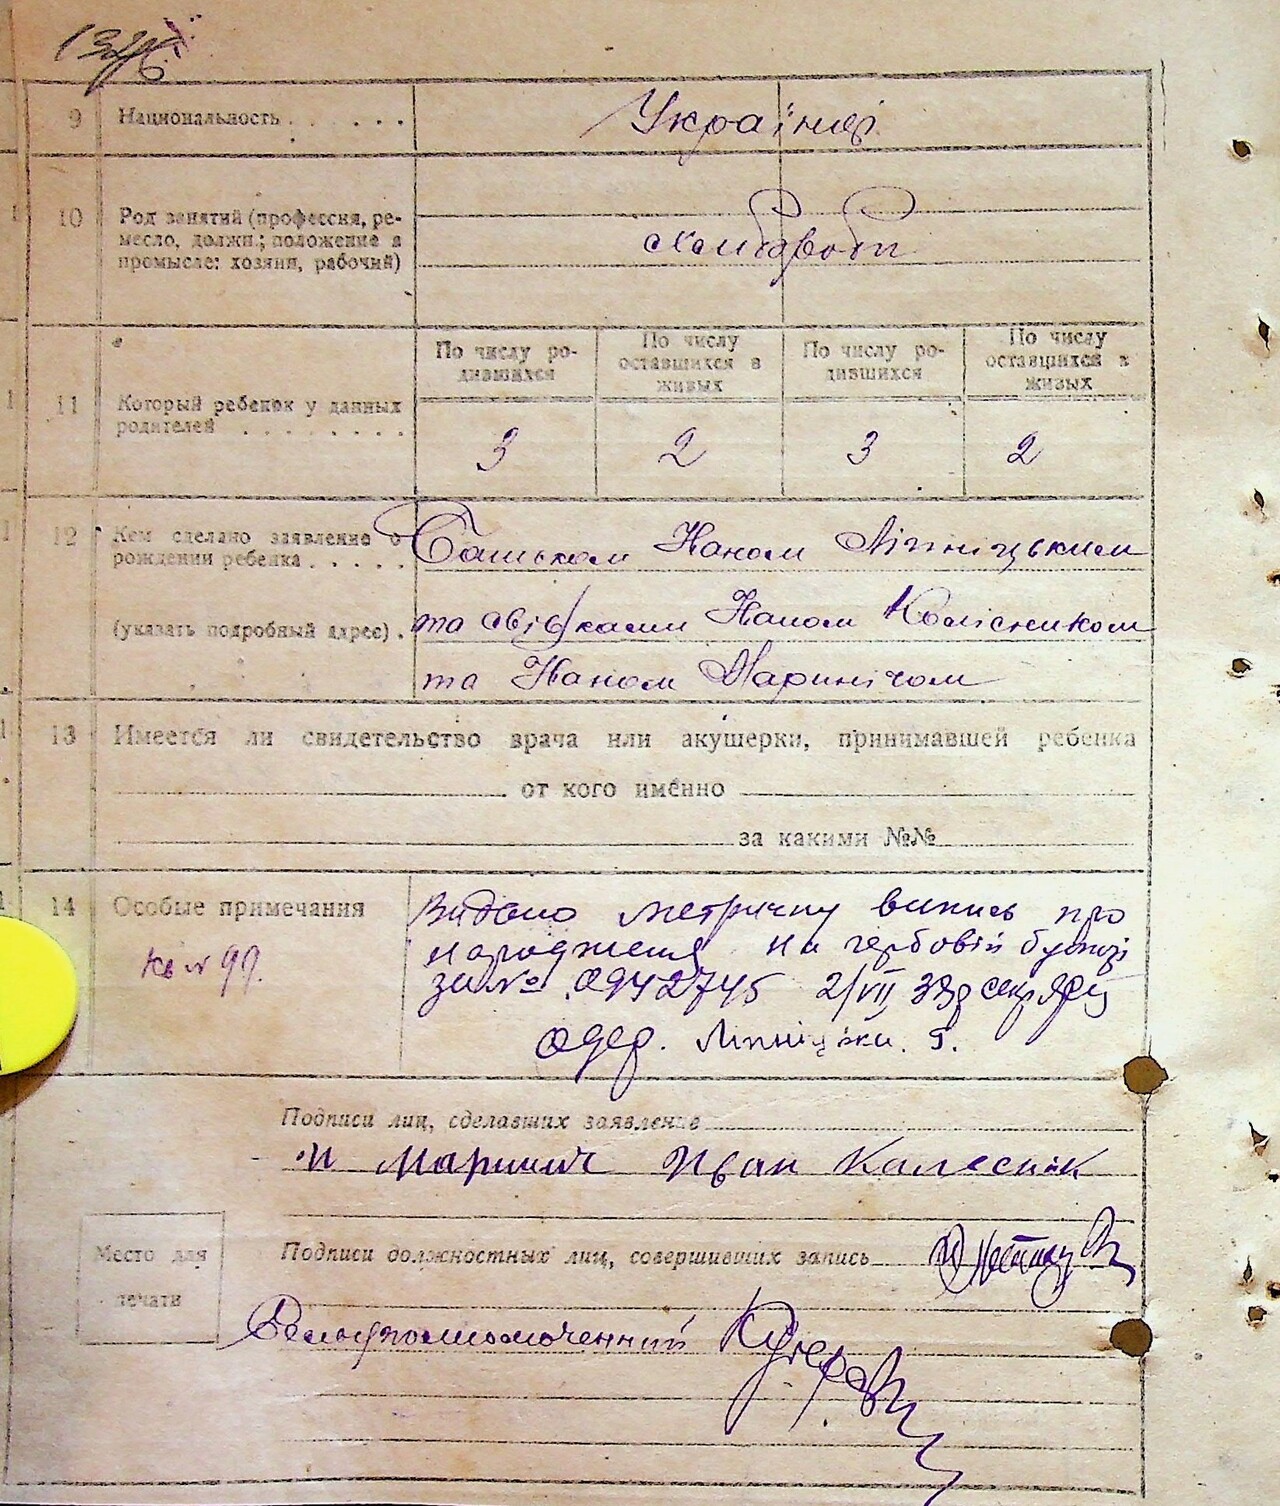 9 Национальность . . . . . . Українці
10 Род занятий (профессия, ре-
месло, должн.; положение в
промысле: хозяин, рабочий)
хлібороби
По числу ро-
дившихся
По числу
оставшихся в
живых
По числу ро-
дившихся
По числу
оставшихся в
живых
11 Который ребенок у данных
родителей . . . . . . . .
3 2 3 2
12 Кем сделано заявление о
рождении ребенка . . . . .
Батьком Іваном Ліпніцьким
(указать подробный адрес) . та свідками Іваном Колісником
та Іваном Маринічом
13 Имеется ли свидетельство врача или акушерки, принимавшей ребенка
от кого именно
за какими №№
14 Особые примечания
Видано метричну випись про
народження на гербовій бумазі
за № 0942745 2/VII 33р
Кв № 99.
одер. Ліпніцький.
Подписи лиц, сделавших заявление
И Маринич Иван Калесник
Подписи должностных лиц, совершивших запись
Место для
печати
Сельуполномоченний